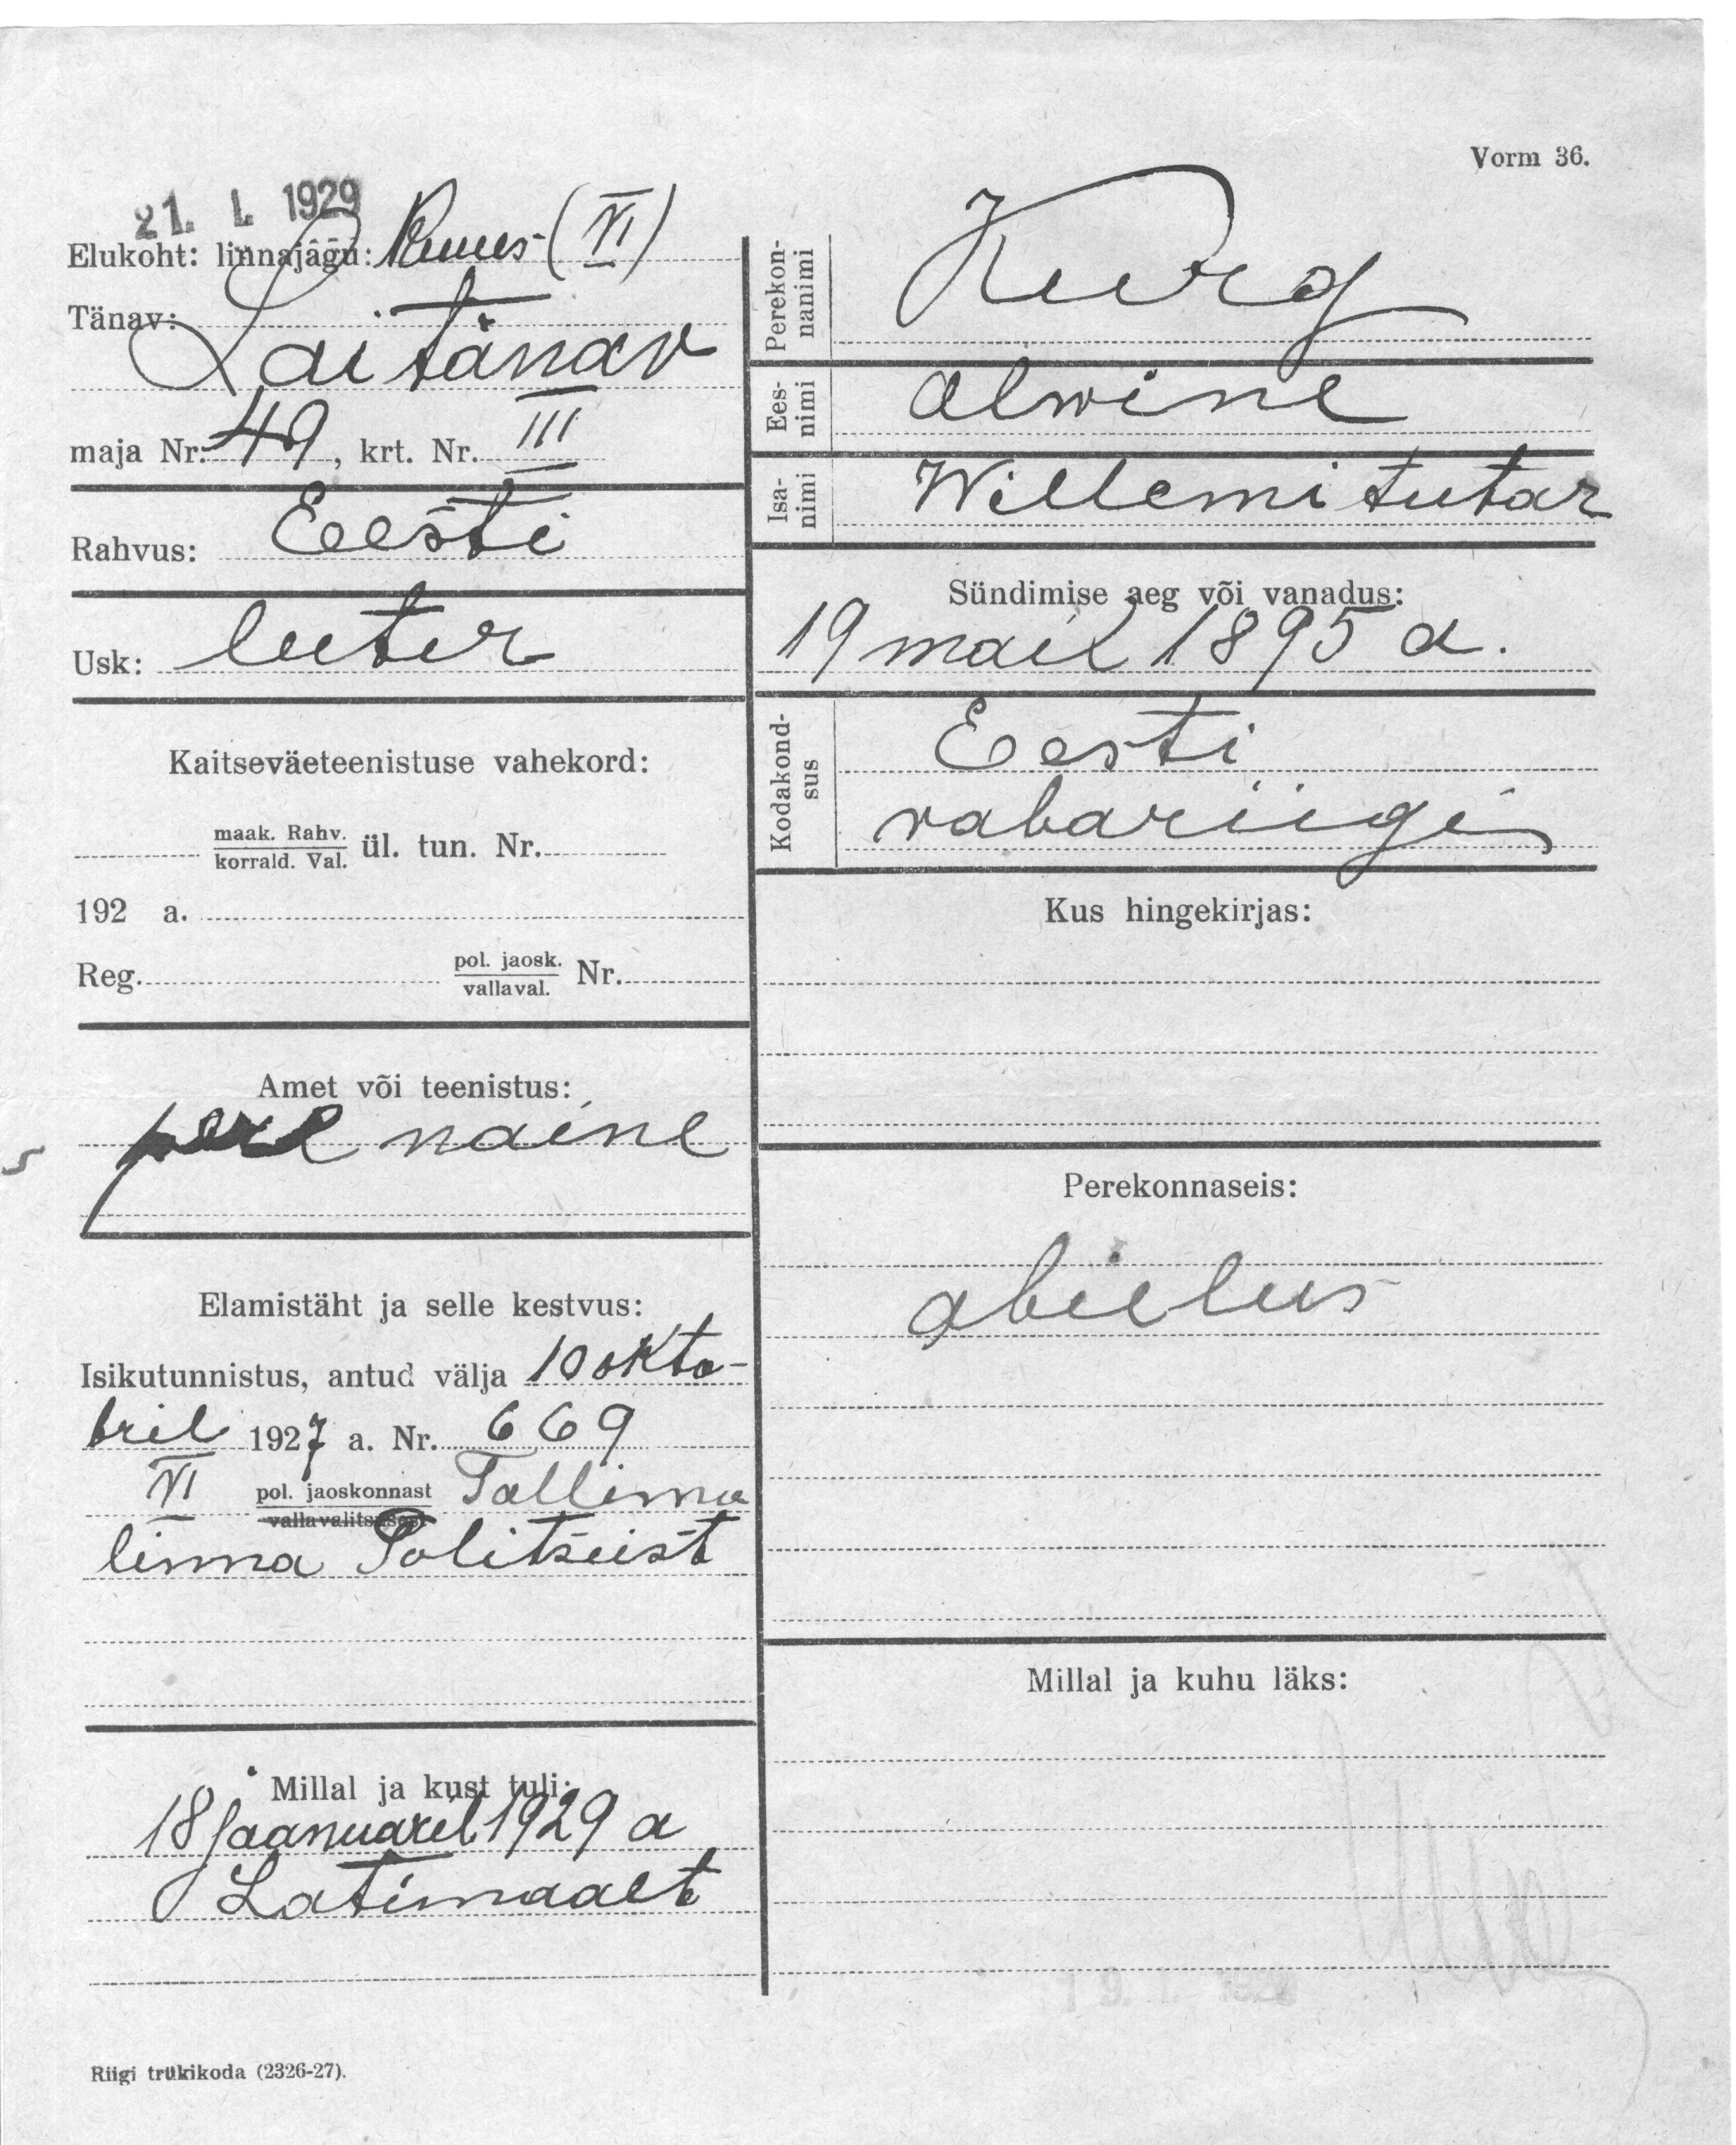 Vorm 36.
21. I. 1929
Elukoht: linnajagu: Kuues (VI)
Tänav:
Lai tänav
maja Nr. 49, krt. Nr. III
Rahvus: Eesti
Usk: luter
Kaitseväeteenistuse vahekord:
maak. Rahv.
korrald. Val. ül. tun. Nr.
192 a.
Reg. pol. jaosk.
vallaval. Nr.
Amet või teenistus:
pere naine
Elamistäht ja selle kestvus:
Isikutunnistus, antud välja 10 okto-
bril 1927 a. Nr. 669
VI pol. jaoskonnast Tallinna
vallavalitsusest
linna Politseist
Millal ja kust tuli:
18 Jaanuaril 1929 a
Latimaalt
Riigi trükikoda (2326-27).
Perekon-
nanimi Kurg
Ees-
nimi Alwine
Isa-
nimi Willemi tutar
Sündimise aeg või vanadus:
19 mail 1895 a.
Kodakond-
sus Eesti
vabariigi
Kus hingekirjas:
Perekonnaseis:
abielus
Millal ja kuhu läks: